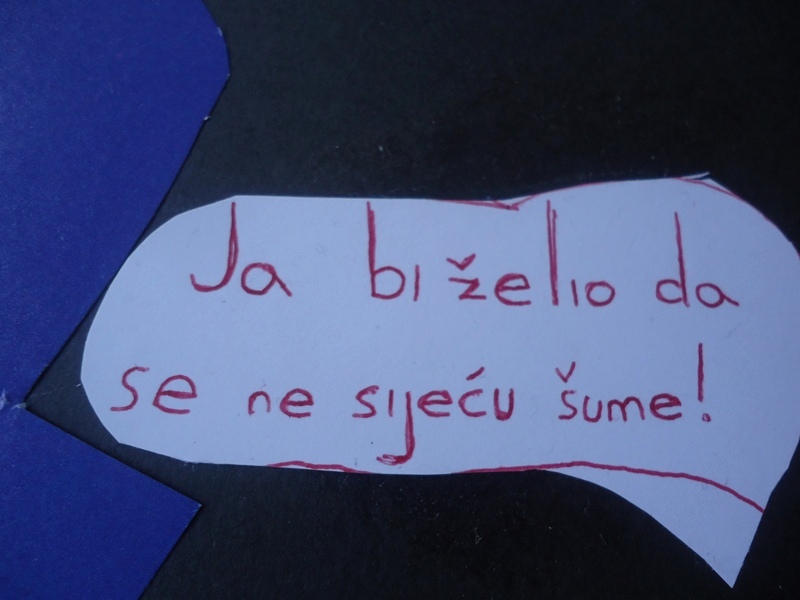 Ja bi želio da
se ne sijeću šume!